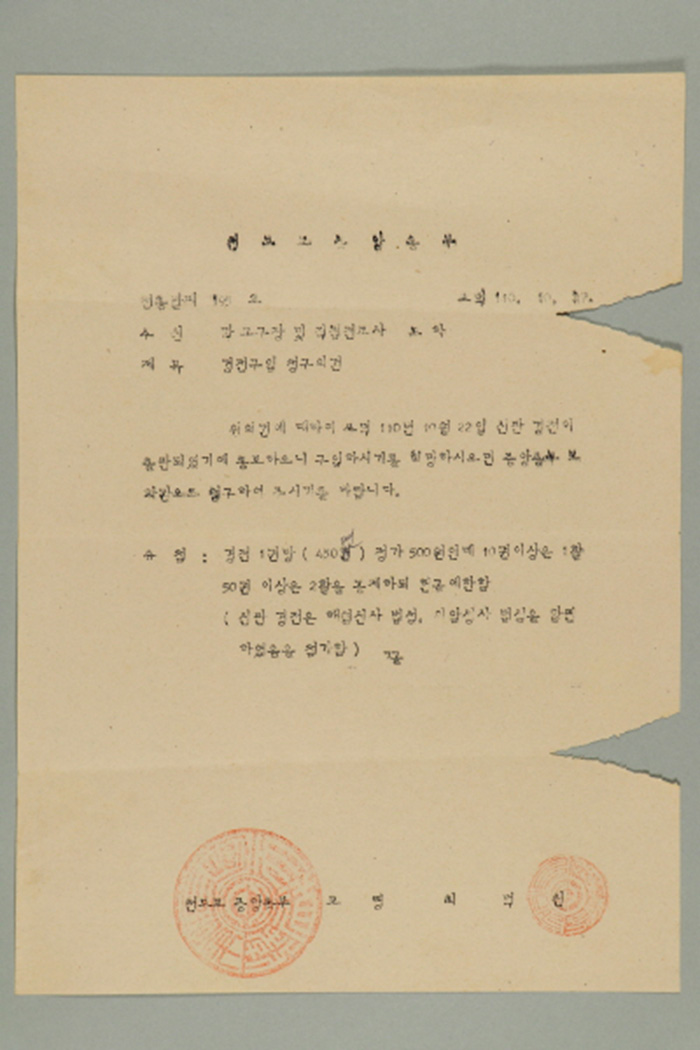 천도교중앙총부
수 신 각 교구장 및 직접전교사 도 착
제 목 경전구입 청구의건
위의건에 대하여 포덕 110년 10월 22일 신판 경전이
출판되었기에 통보하오니 구입하시기를 희망하시오면 중앙총부로
청구하여 주시기를 바랍니다.
유 첨 : 경전 1권당 ( 450 ) 정가 500원인데 10권이상은 1할
50권 이상은 2할을 공제하되 현금에한함
( 신판 경전은 해월신사 법설, 의암성사 법설을 합편
하였음을 첨기함 ) 끝
천도교 중앙총부 교 령 최 덕 신